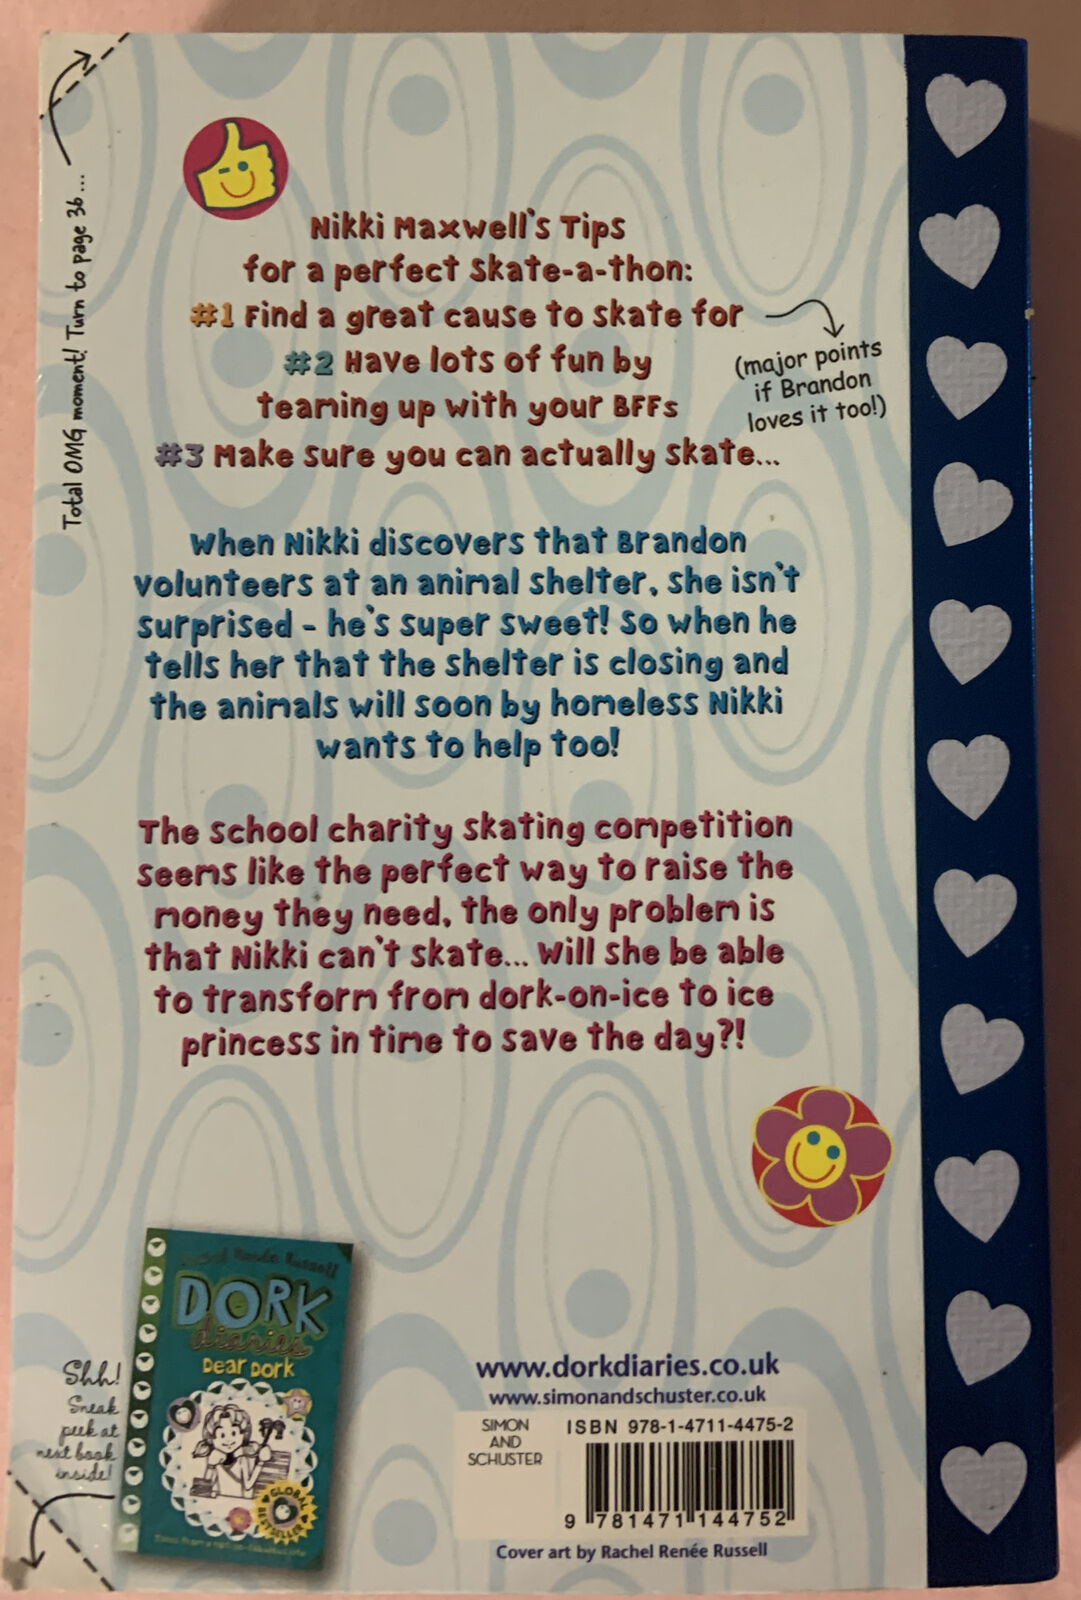 Total OMG moment! Turn to page 36...
Nikki Maxwell's Tips
for a perfect Skate-a-thon:
#1 Find a great cause to skate for
(major points
if Brandon
loves it too!)
#2 Have lots of fun by
teaming up with your BFFs
#3 Make sure you can actually skate...
When Nikki discovers that Brandon
volunteers at an animal shelter, she isn't
surprised - he's super sweet! So when he
tells her that the shelter is closing and
the animals will soon by homeless Nikki
wants to help too!
The school charity skating competition
seems like the perfect way to raise the
money they need, the only problem is
that Nikki can't skate... Will she be able
to transform from dork-on-ice to ice
princess in time to save the day?!
Shh!
Sneak
peek at
next book
inside!
Renée Russell
DORK
diaries
Dear Dork
GLOBAL
BESTSELLER
www.dorkdiaries.co.uk
www.simonandschuster.co.uk
SIMON
AND
SCHUSTER
ISBN 978-1-4711-4475-2
9 781471 144752
Cover art by Rachel Renée Russell